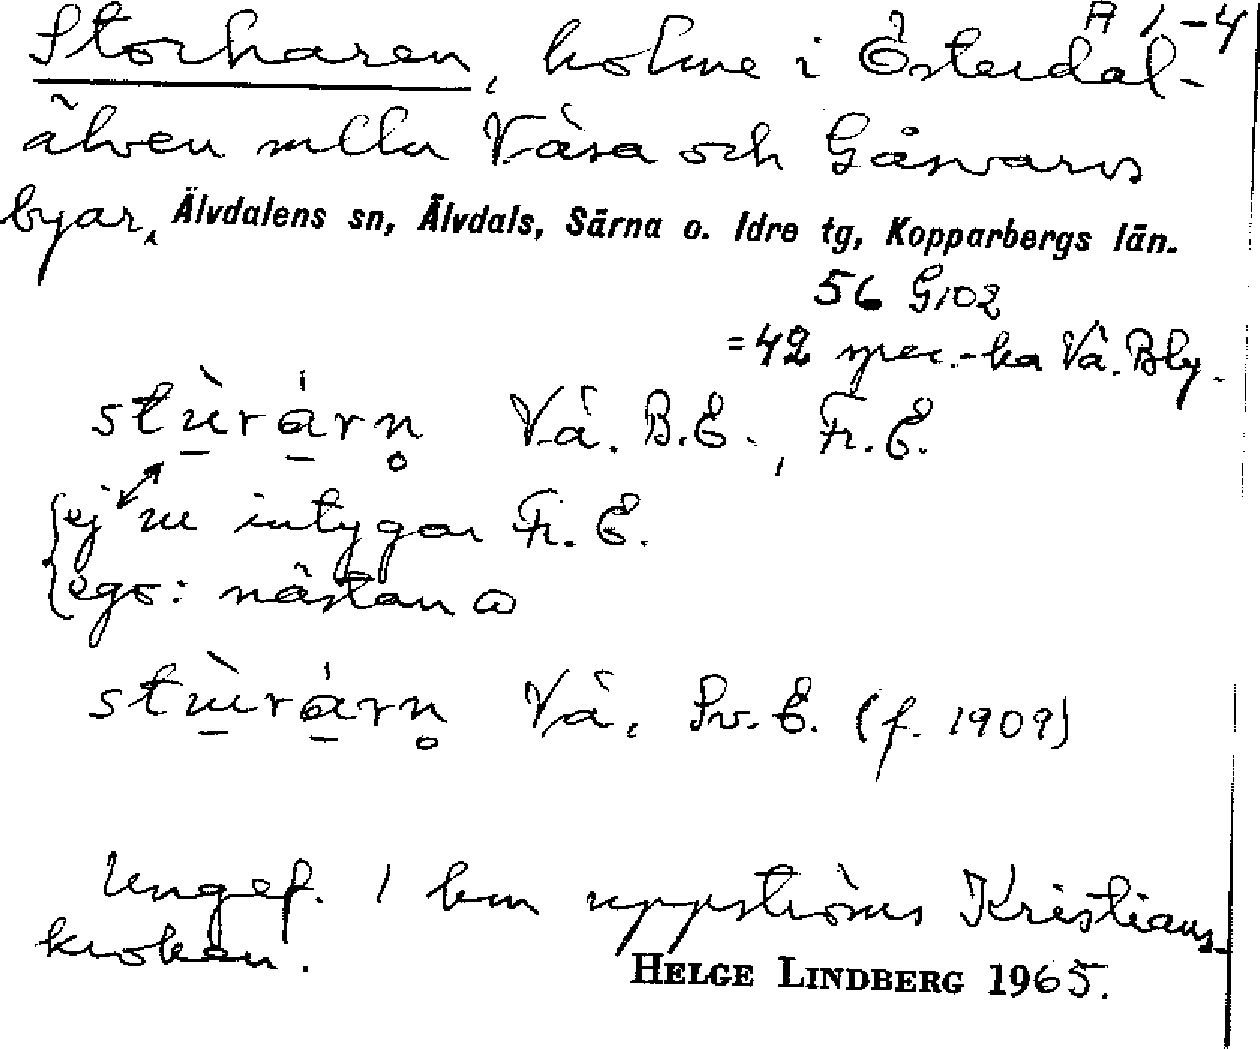 A 1-4
Storharen, holme i Österdal-
älven mlla Våsa och Gåsvarvs
byar, Älvdalens sn, Älvdals, Särna o. Idre tg, Kopparbergs län.
56 G102
= 42 spec.-ka Vå. Bly.
stùrárn̥ Vå. B.E., Fr. E.
ej ɯ intygar Fr. E.
ego: nästan ɷ
stɯ̀rárn̥ Vå. Sv. E. (f. 1909)
Ungef. 1 km uppströms Kristians-
kroken.
HELGE LINDBERG 1965.